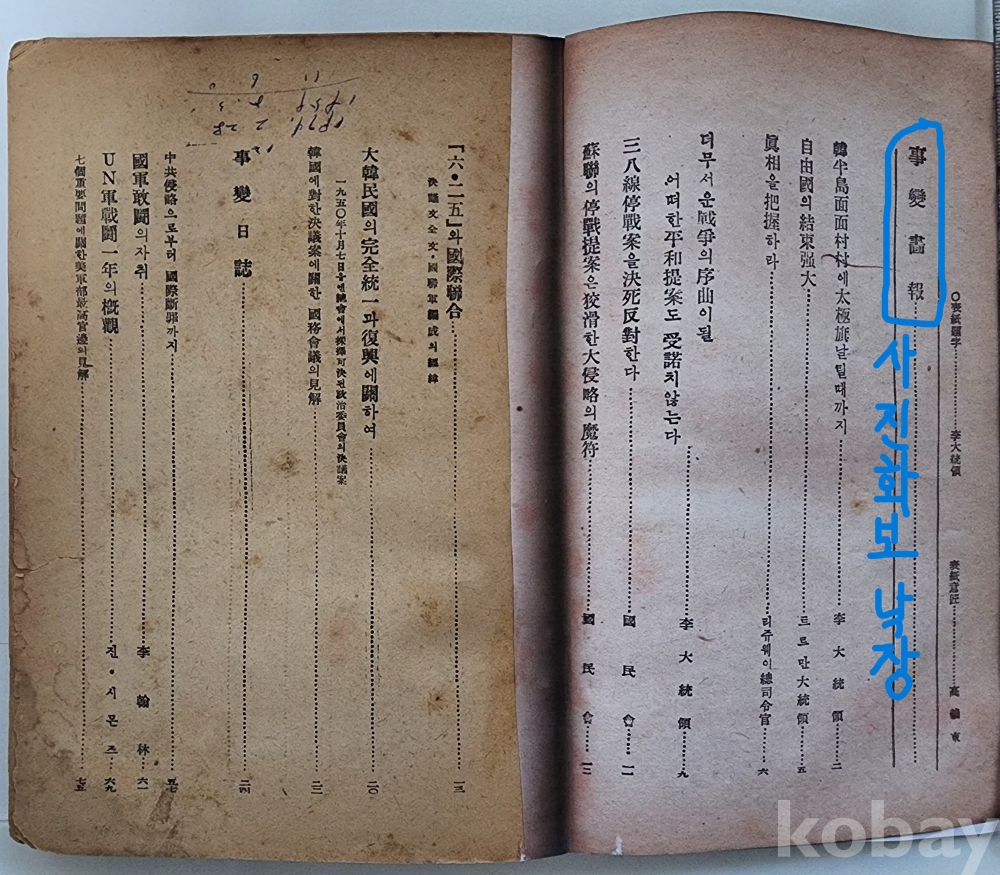 ○表紙題字 李大統領 表紙意匠 高義東
事變畵報
사진화보 낙장
韓半島面面村村에太極旗날릴때까지 李大統領 二
自由國의結束强大 트르만大統領 五
眞相을把握하라 리쥬웨이總司令官 六
더무서운戰爭의序曲이될
어떠한平和提案도 受諾치않는다 李大統領 九
三八線停戰案을決死反對한다 國民會 一一
蘇聯의停戰提案은狡滑한大侵略의魔符 國民會 一二
『六·二五』와國際聯合 一三
決議文全文·國聯軍編成의經緯
大韓民國의完全統一과復興에關하여 二〇
一九五〇年十月七日유엔總會에서採擇可決된政治委員會의決議案
韓國에對한決議案에關한 國務會議의見解 二二
事變日誌 二四
中共侵略으로부터 國際斷罪까지 五七
國軍敢鬪의자취 李翰林 六一
UN軍戰鬪一年의槪觀 진·시몬즈 六九
七個重要問題에關한美軍部最高官邊의見解 七五
kobay